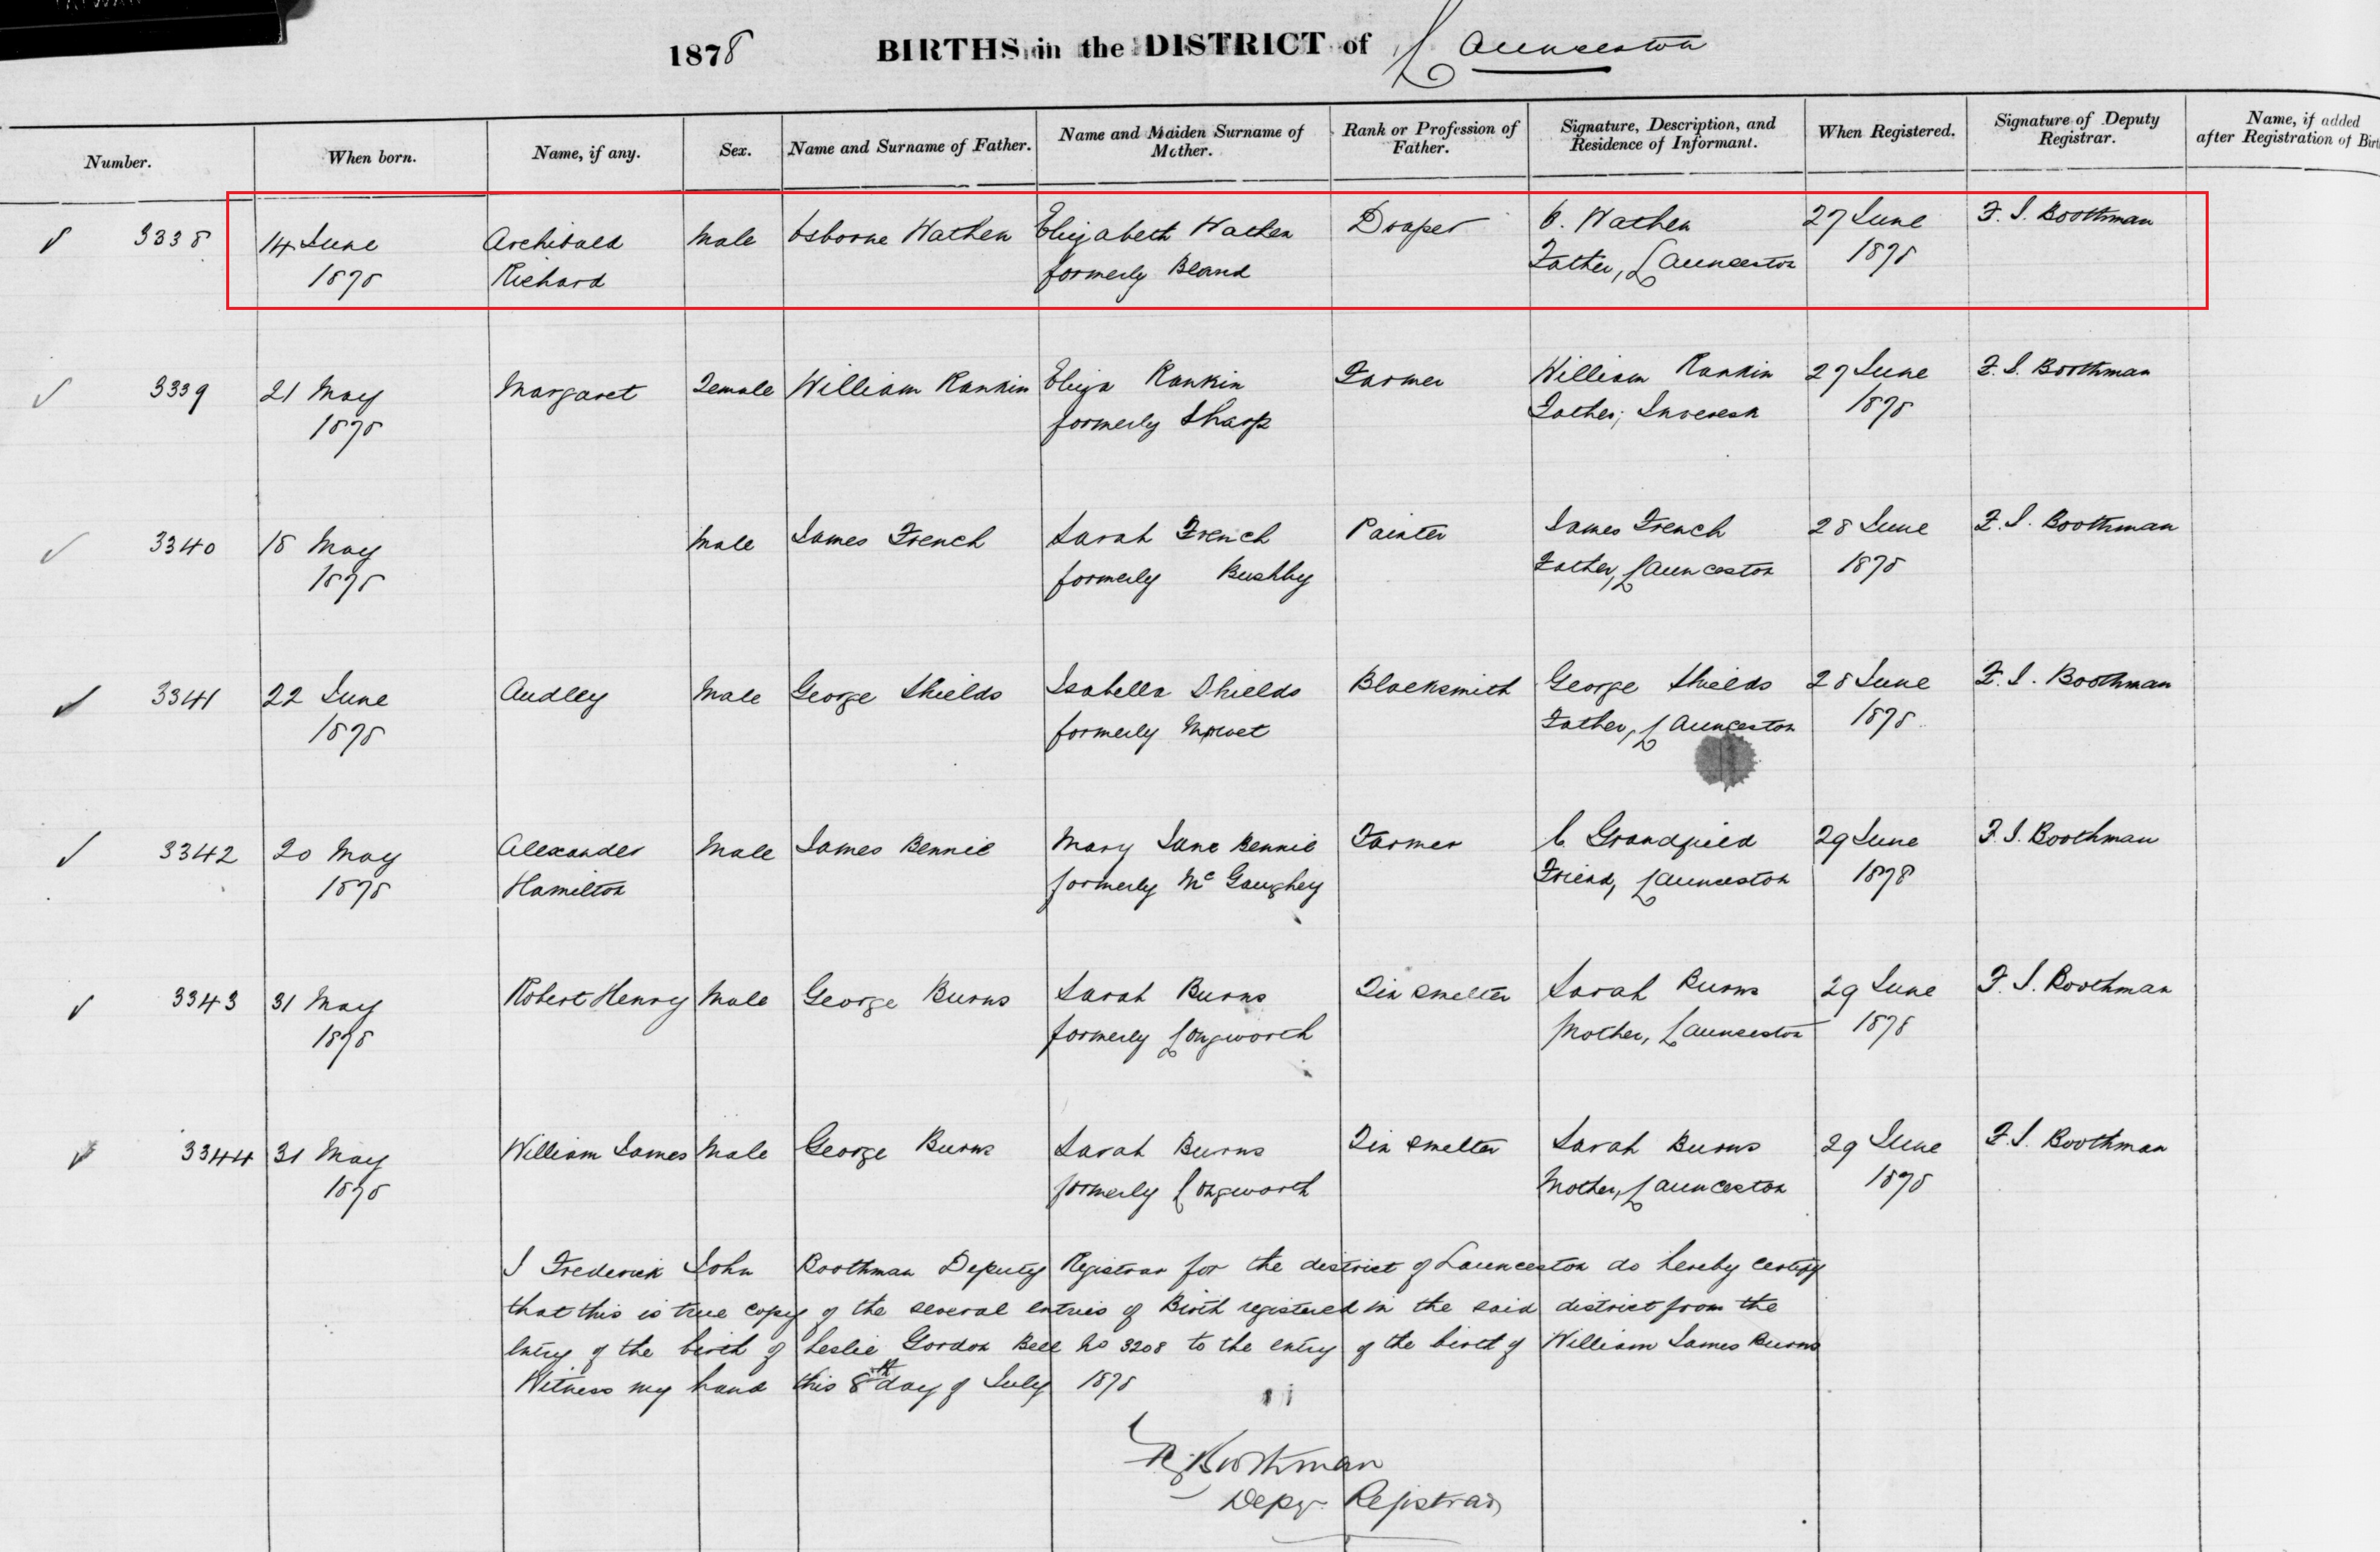 1878 BIRTHS in the DISTRICT of Launceston
Number. When born. Name, if any. Sex. Name and Surname of Father. Name and Maiden Surname of Mother. Rank or Profession of Father. Signature, Description, and Residence of Informant. When Registered. Signature of Deputy Registrar. Name, if added after Registration of Birt
3338 14 June Archibald Male Osborne Wathen Elizabeth Wathen Draper O. Wathen 27 June F. J. Boothman
1878 Richard formerly Bland Father, Launceston 1878
3339 21 May Margaret Female William Rankin Eliza Rankin Farmer William Rankin 27 June F. J. Boothman
1878 formerly Sharp Father, Inveresk 1878
3340 18 May Male James French Sarah French Painter James French 28 June F. J. Boothman
1878 formerly Bushby Father, Launceston 1878
3341 22 June Audley Male George Shields Isabella Shields Blacksmith George Shields 28 June F. J. Boothman
1878 formerly Father, Launceston 1878
3342 20 May Alexander Male James Bennie Mary Jane Bennie Farmer C. Grandfield 29 June F. J. Boothman
1878 Hamilton formerly McGaughey Friend, Launceston 1878
3343 31 May Robert Henry Male George Burns Sarah Burns Tin smelter Sarah Burns 29 June F. J. Boothman
1878 formerly Longworth Mother, Launceston 1878
3344 31 May William James Male George Burns Sarah Burns Tin smelter Sarah Burns 29 June F. J. Boothman
1878 formerly Longworth Mother, Launceston 1878
I Frederick John Boothman Deputy Registrar for the district of Launceston do hereby certify
that this is true copy of the several entries of Birth registered in the said district from the
entry of the birth of Leslie Gordon Bell No 3208 to the entry of the birth of William James Burns
Witness my hand this 8th day of July 1878
Boothman
Depy. Registrar